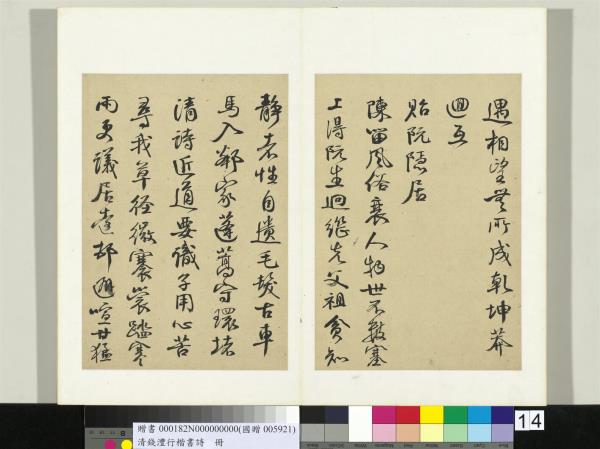 遇相望無所成乾坤莽
迴互
貽阮隱居
陳留風俗衰人物世不數塞
上得阮生迥繼先父祖貧知
靜者性自遺毛髮古車
馬入鄰家蓬蒿守環堵
清詩近道要識子用心苦
尋我草徑微褰裳蹋寒
雨更議居遠邨避喧甘猛
14
贈書 000182N000000000(國贈 005921)
清錢澧行楷書詩 冊